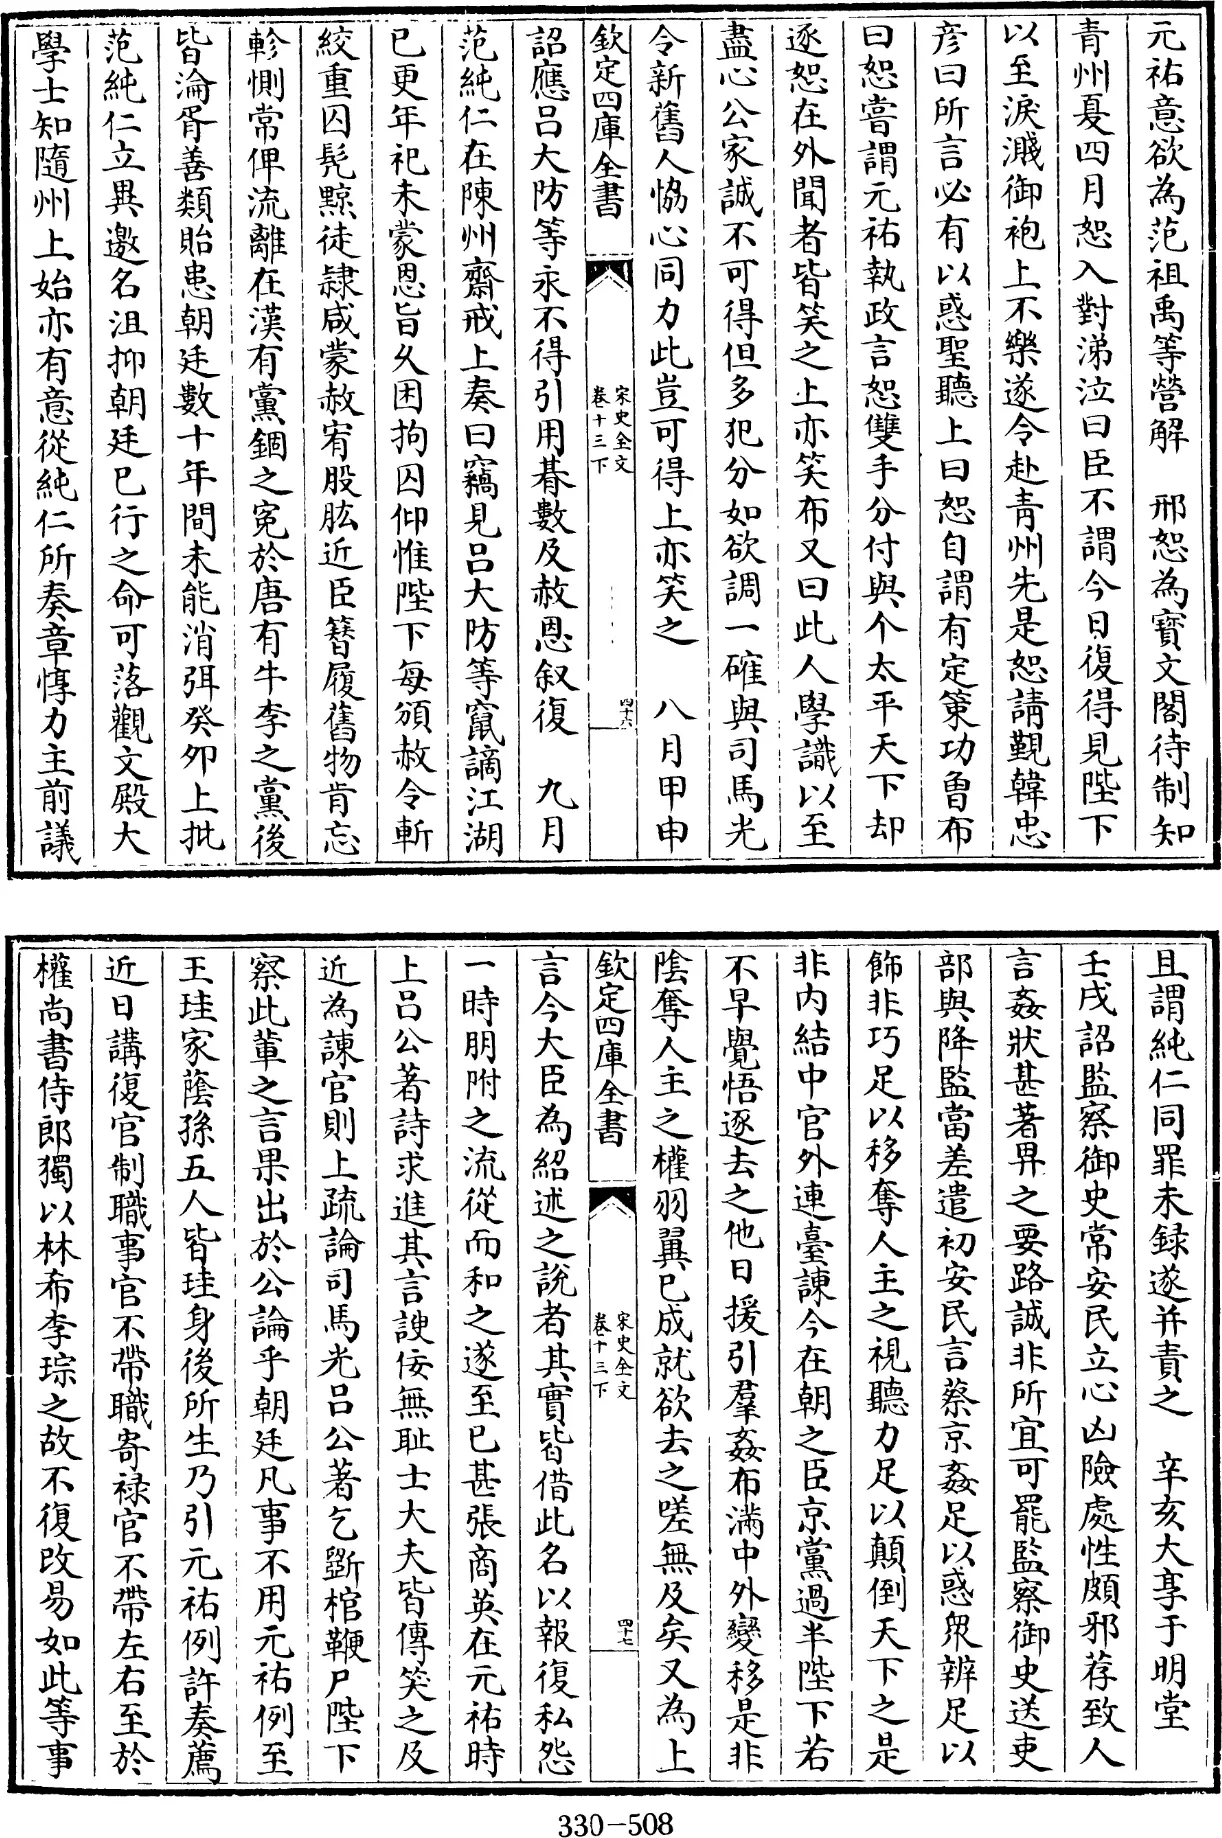 元祐意欲為范祖禹等營解　邢恕為寳文閣待制知
青州夏四月恕入對涕泣曰臣不謂今日復得見陛下
以至淚濺御袍上不樂遂令赴青州先是恕請覲韓忠
彦曰所言必有以惑聖聽上曰恕自謂有定策功曾布
曰恕嘗謂元祐執政言恕雙手分付與个太平天下却
逐恕在外聞者皆笑之上亦笑布又曰此人學識以至
盡心公家誠不可得但多犯分如欲調一確與司馬光
令新舊人恊心同力此豈可得上亦笑之　八月甲申
欽定四庫全書
宋史全文
卷十三下
四十六
詔應吕大防等永不得引用朞數及赦恩叙復　九月
范純仁在陳州齋戒上奏曰竊見吕大防等竄謫江湖
已更年祀未蒙恩旨久困拘囚仰惟陛下每頒赦令斬
絞重囚髠黥徒隸咸蒙赦宥股肱近臣簪履舊物肯忘
軫惻常俾流離在漢有黨錮之寃於唐有牛李之黨後
皆淪胥善類貽患朝廷數十年間未能消弭癸夘上批
范純仁立異邀名沮抑朝廷已行之命可落觀文殿大
學士知隨州上始亦有意從純仁所奏章惇力主前議
且謂純仁同罪未録遂并責之　辛亥大享于明堂
壬戌詔監察御史常安民立心凶險處性頗邪荐致人
言姦狀甚著畀之要路誠非所宜可罷監察御史送吏
部與降監當差遣初安民言蔡京姦足以惑衆辨足以
飾非巧足以移奪人主之視聽力足以顛倒天下之是
非内結中官外連臺諫今在朝之臣京黨過半陛下若
不早覺悟逐去之他日援引羣姦布滿中外變移是非
隂奪人主之權羽翼已成就欲去之嗟無及矣又為上
欽定四庫全書
宋史全文
卷十三下
四十七
言今大臣為紹述之說者其實皆借此名以報復私怨
一時朋附之流從而和之遂至已甚張商英在元祐時
上吕公著詩求進其言諛佞無耻士大夫皆傳笑之及
近為諫官則上疏論司馬光吕公著乞斵棺鞭尸陛下
察此輩之言果出於公論乎朝廷凡事不用元祐例至
王珪家蔭孫五人皆珪身後所生乃引元祐例許奏薦
近日講復官制職事官不帶職寄禄官不帶左右至於
權尚書侍郎獨以林希李琮之故不復改易如此等事
330—508